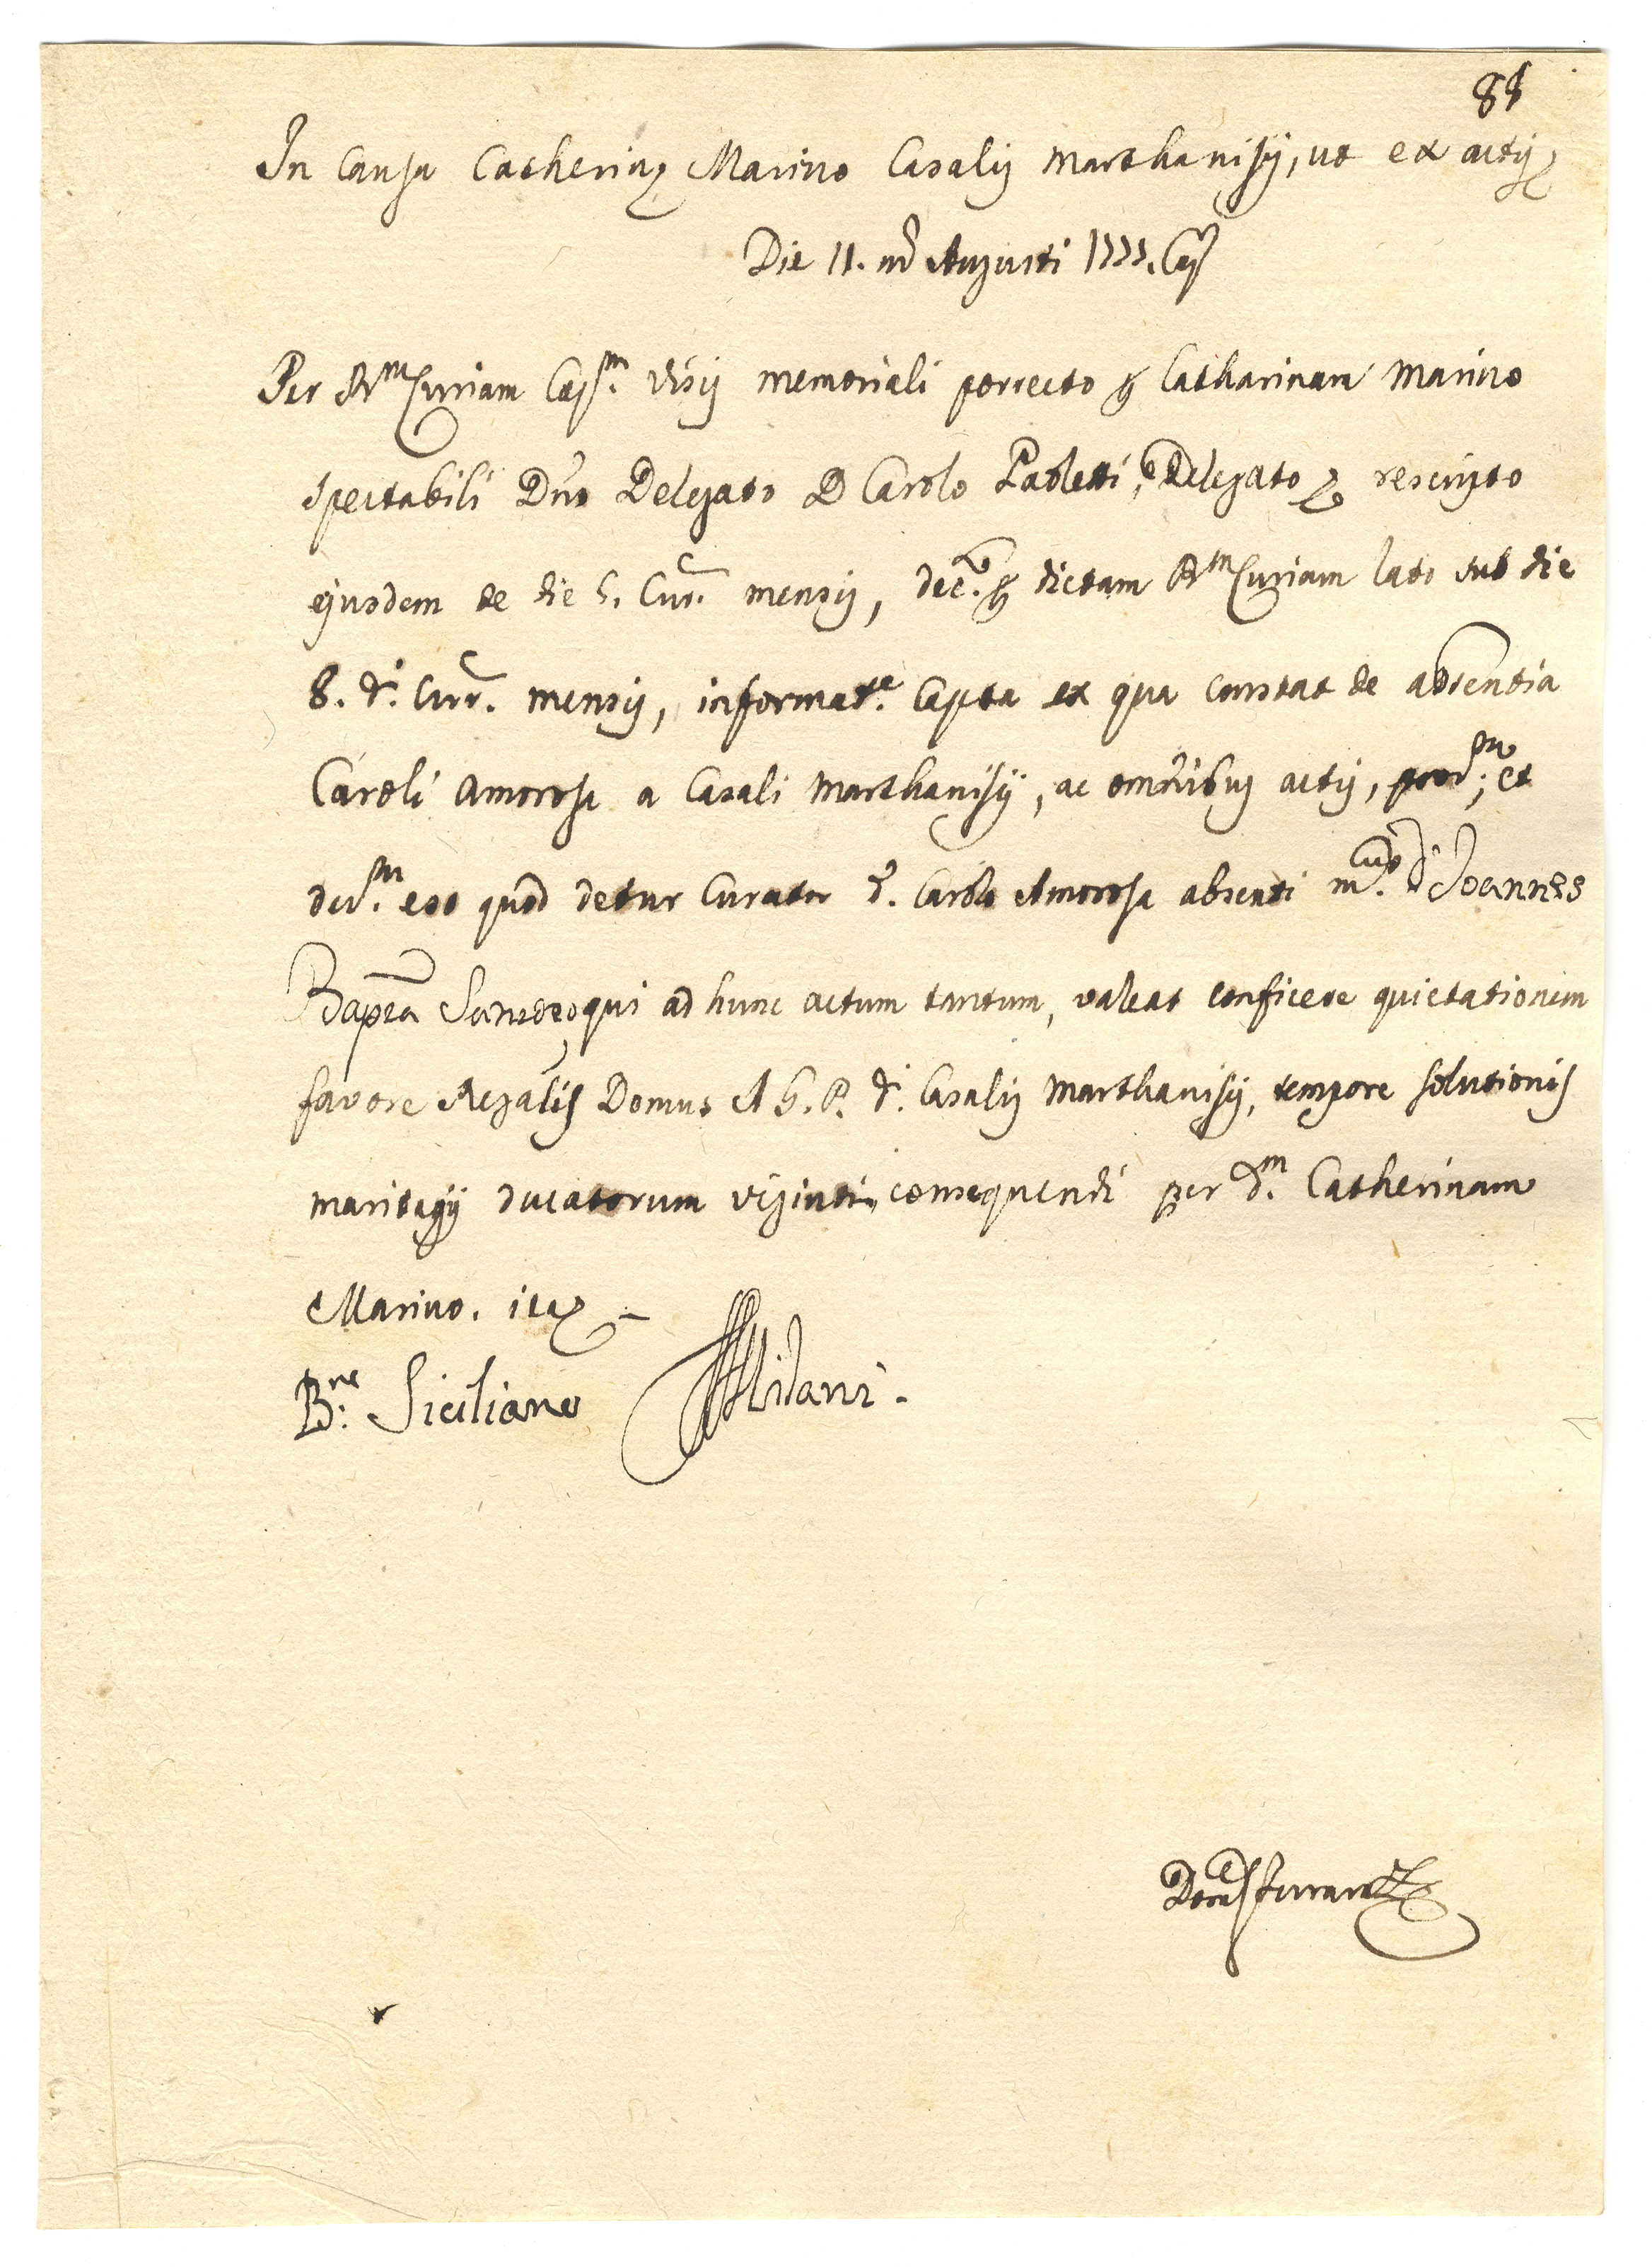 In Causa Catherinę Marino Casalis Marthanisij, ut ex actis
Die 11. mẽ Augusti 1777. Cas
Per R.m Curiam Cas.m visis memoriali porrecto p Catharinam Marino
spectabili Dño Delegato D Carolo Paoletti, Delegato rescripto
ejusdem de die 5. Cur. mensis, dec.o p dictam R.m Curiam lato sub die
8. d.i Curr. mensis, informat.e Capta ex qua constat de absentia
Caroli Amorosa a Casali Marthanisij, ac omnibus actis, prov.m; et
dec.m est quod detur Curator d.o Carolo Amorosa absenti m.cus d Joannes
Bapta qui ad hunc actum tantum, valeat conficere quietationem
favore Regalis Domus A G. P. d.i Casalis Marthanisij, tempore solutionis
maritagij ducatorum viginti consequendi per d.m Catherinam
Marino. ita
B.ne Siciliano Milani.